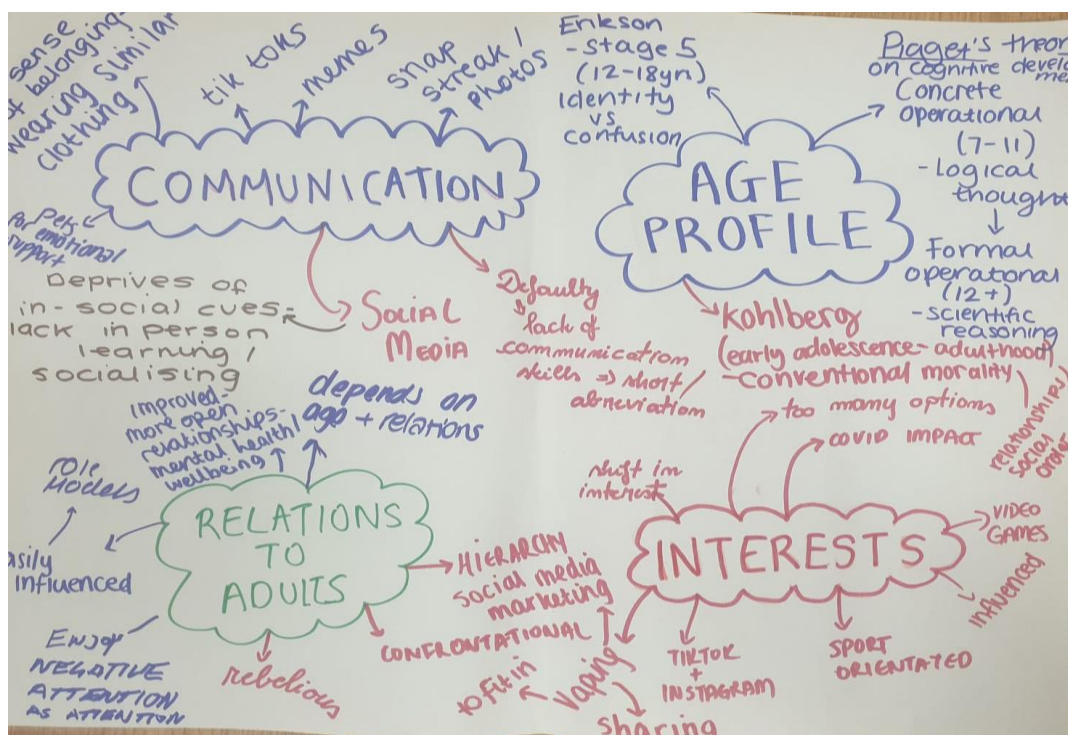 sense
of belonging-
wearing similar
clothing
tik toks
memes
snap
streak /
photos
COMMUNICATION
Pets
for emotional
support
Deprives of
in-social cues-
lack in person
learning /
socialising
SOCIAL
MEDIA
Defaulty
lack of
communication
skills => short/
abreviation
Erikson
-stage 5
(12-18yr)
Identity
vs
confusion
AGE
PROFILE
Piaget's theor
on cognitive develo
me
Concrete
operational
(7-11)
-logical
thought
Formal
operational
(12+)
-scientific
reasoning
Kohlberg
(early adolescence-adulthood)
-conventional morality
relationships/
social
order
improved-
more open
relationships-
mental health/
wellbeing
depends on
age + relations
role
models
easily
influenced
RELATIONS
TO
ADULTS
Enjoy
NEGATIVE
ATTENTION
AS ATTENTION
rebelious
CONFRONTATIONAL
HIERARCHY
shift in
interest
too many options
COVID IMPACT
INTERESTS
VIDEO
GAMES
influenced
SPORT
ORIENTATED
TIKTOK
+
INSTAGRAM
Vaping
social media
marketing
to fit in
sharing